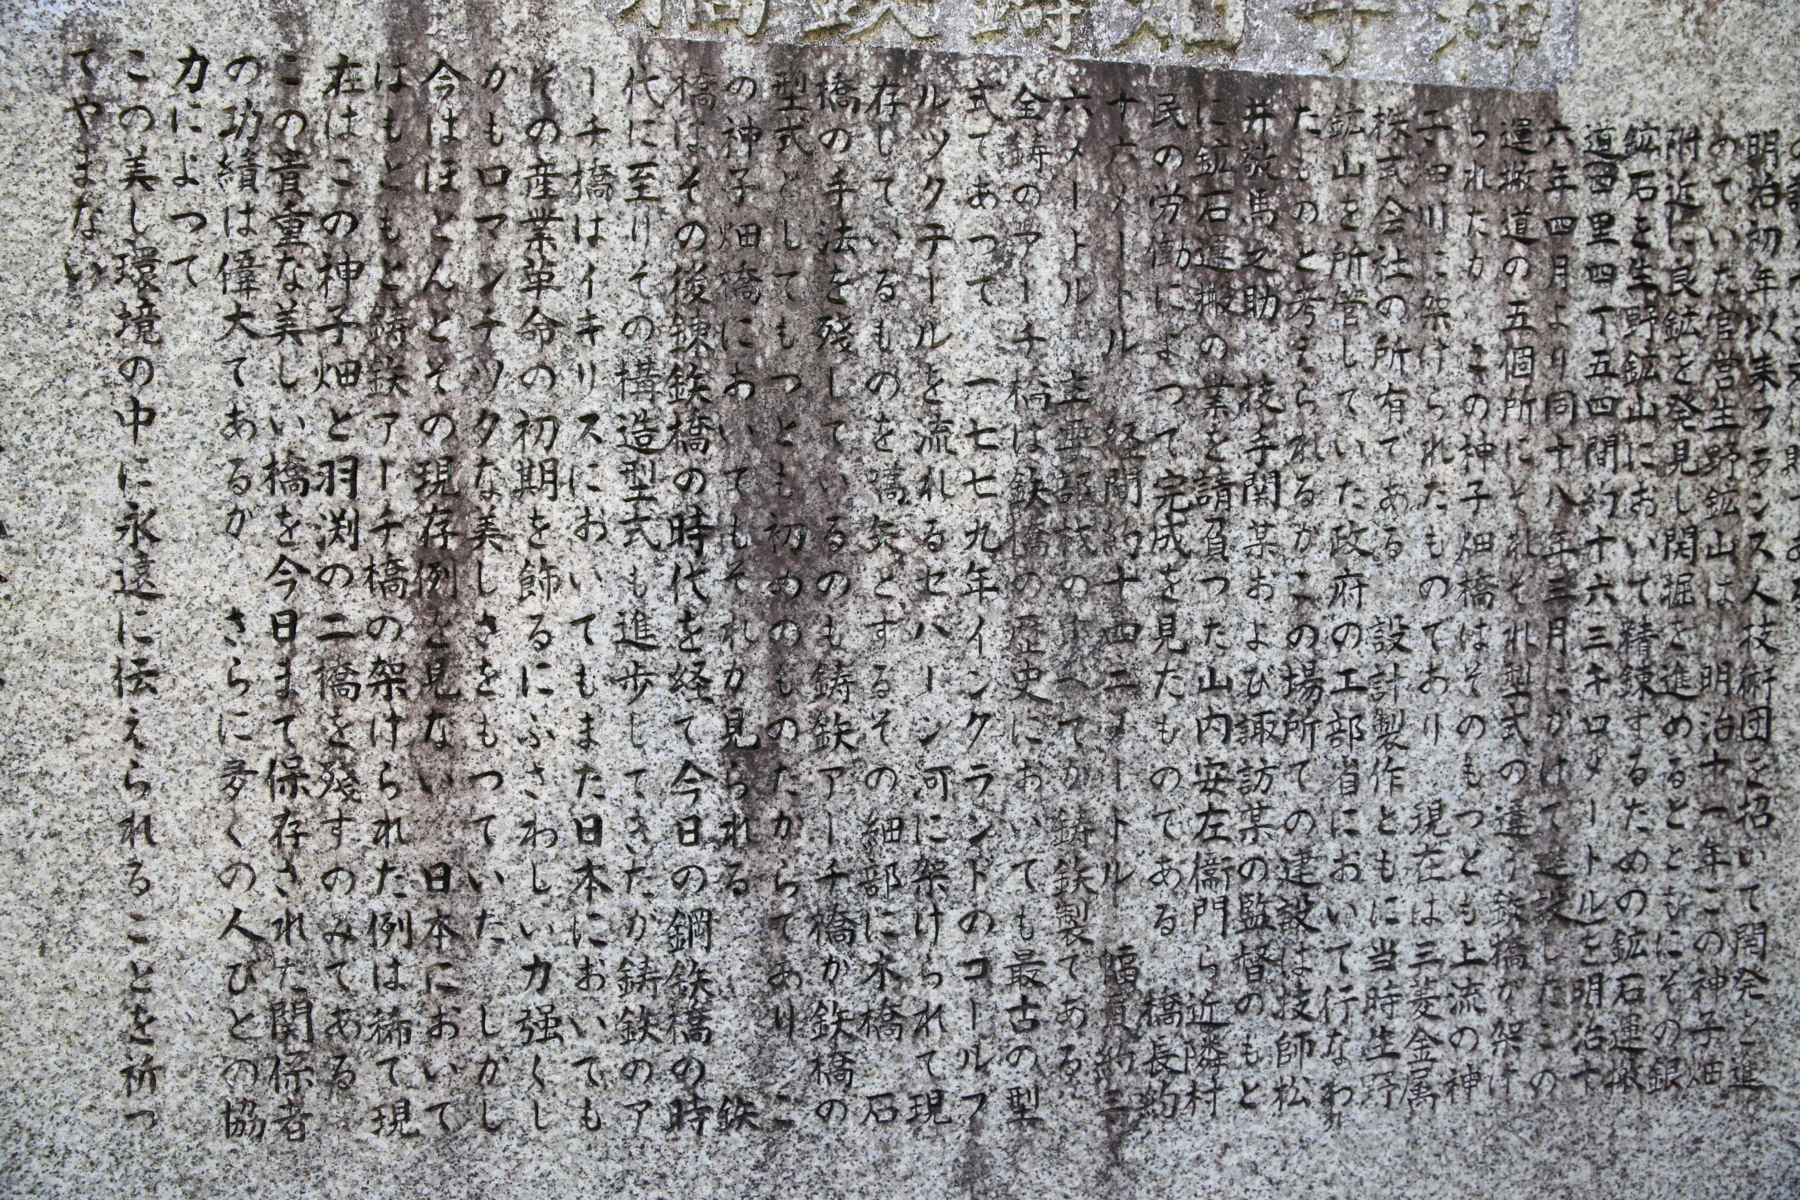 神子畑鋳鉄橋
明治初年以来フランス人技術団を招いて開発を進
めていた官営生野鉱山は 明治十一年この神子畑
附近に良鉱を発見し開堀を進めるとともにその銀
鉱石を生野鉱山において精錬するための鉱石運搬
道四里四丁五四間約十六三キロメートルを明治十
六年四月より同十八年三月にかけて
運搬道の五個所にそれぞれ型式の違う鉄橋が架け
られたが この神子畑橋はそのもつとも上流の神
子畑川に架けられたものであり 現在は三菱金属
株式会社の所有である 設計製作ともに当時生野
鉱山を所管していた政府の工部省において行なわれ
たものと考えられるがこの場所での建設は技師松
井敬馬之助 技手関某および諏訪某の監督のもと
に鉱石運搬の業を請負つた山内安左衞門ら近隣村
民の労働によつて完成を見たものである 橋長約
十六メートル 径間約十四二メートル 幅員約三
六メートル 主要部材のすべてが鋳鉄製である
全鋳のアーチ橋は鉄橋の歴史においても最古の型
式であつて 一七七九年イングランドのコールブ
ルックデールを流れるセバーン河に架けられて現
存しているものを嚆矢とするその細部に木橋 石
橋の手法を残しているのも鋳鉄アーチ橋が鉄橋の
型式としてもつとも初めのものだからであり こ
の神子畑橋においてもそれが見られる 鉄
橋はその後錬鉄橋の時代を経て今日の鋼鉄橋の時
代に至りその構造型式も進歩してきたが鋳鉄のア
ーチ橋はイギリスにおいてもまた日本においても
その産業革命の初期を飾るにふさわしい力強くし
かもロマンチックな美しさをもつていた しかし
今はほとんどその現存例を見ない 日本において
はもともと鋳鉄アーチ橋の架けられた例は稀で現
在はこの神子畑と羽渕の二橋を残すのみである
この貴重な美しい橋を今日まで保存された関係者
の功績は偉大であるが さらに多くの人びとの協
力によつて
この美し環境の中に永遠に伝えられることを祈つ
てやまない